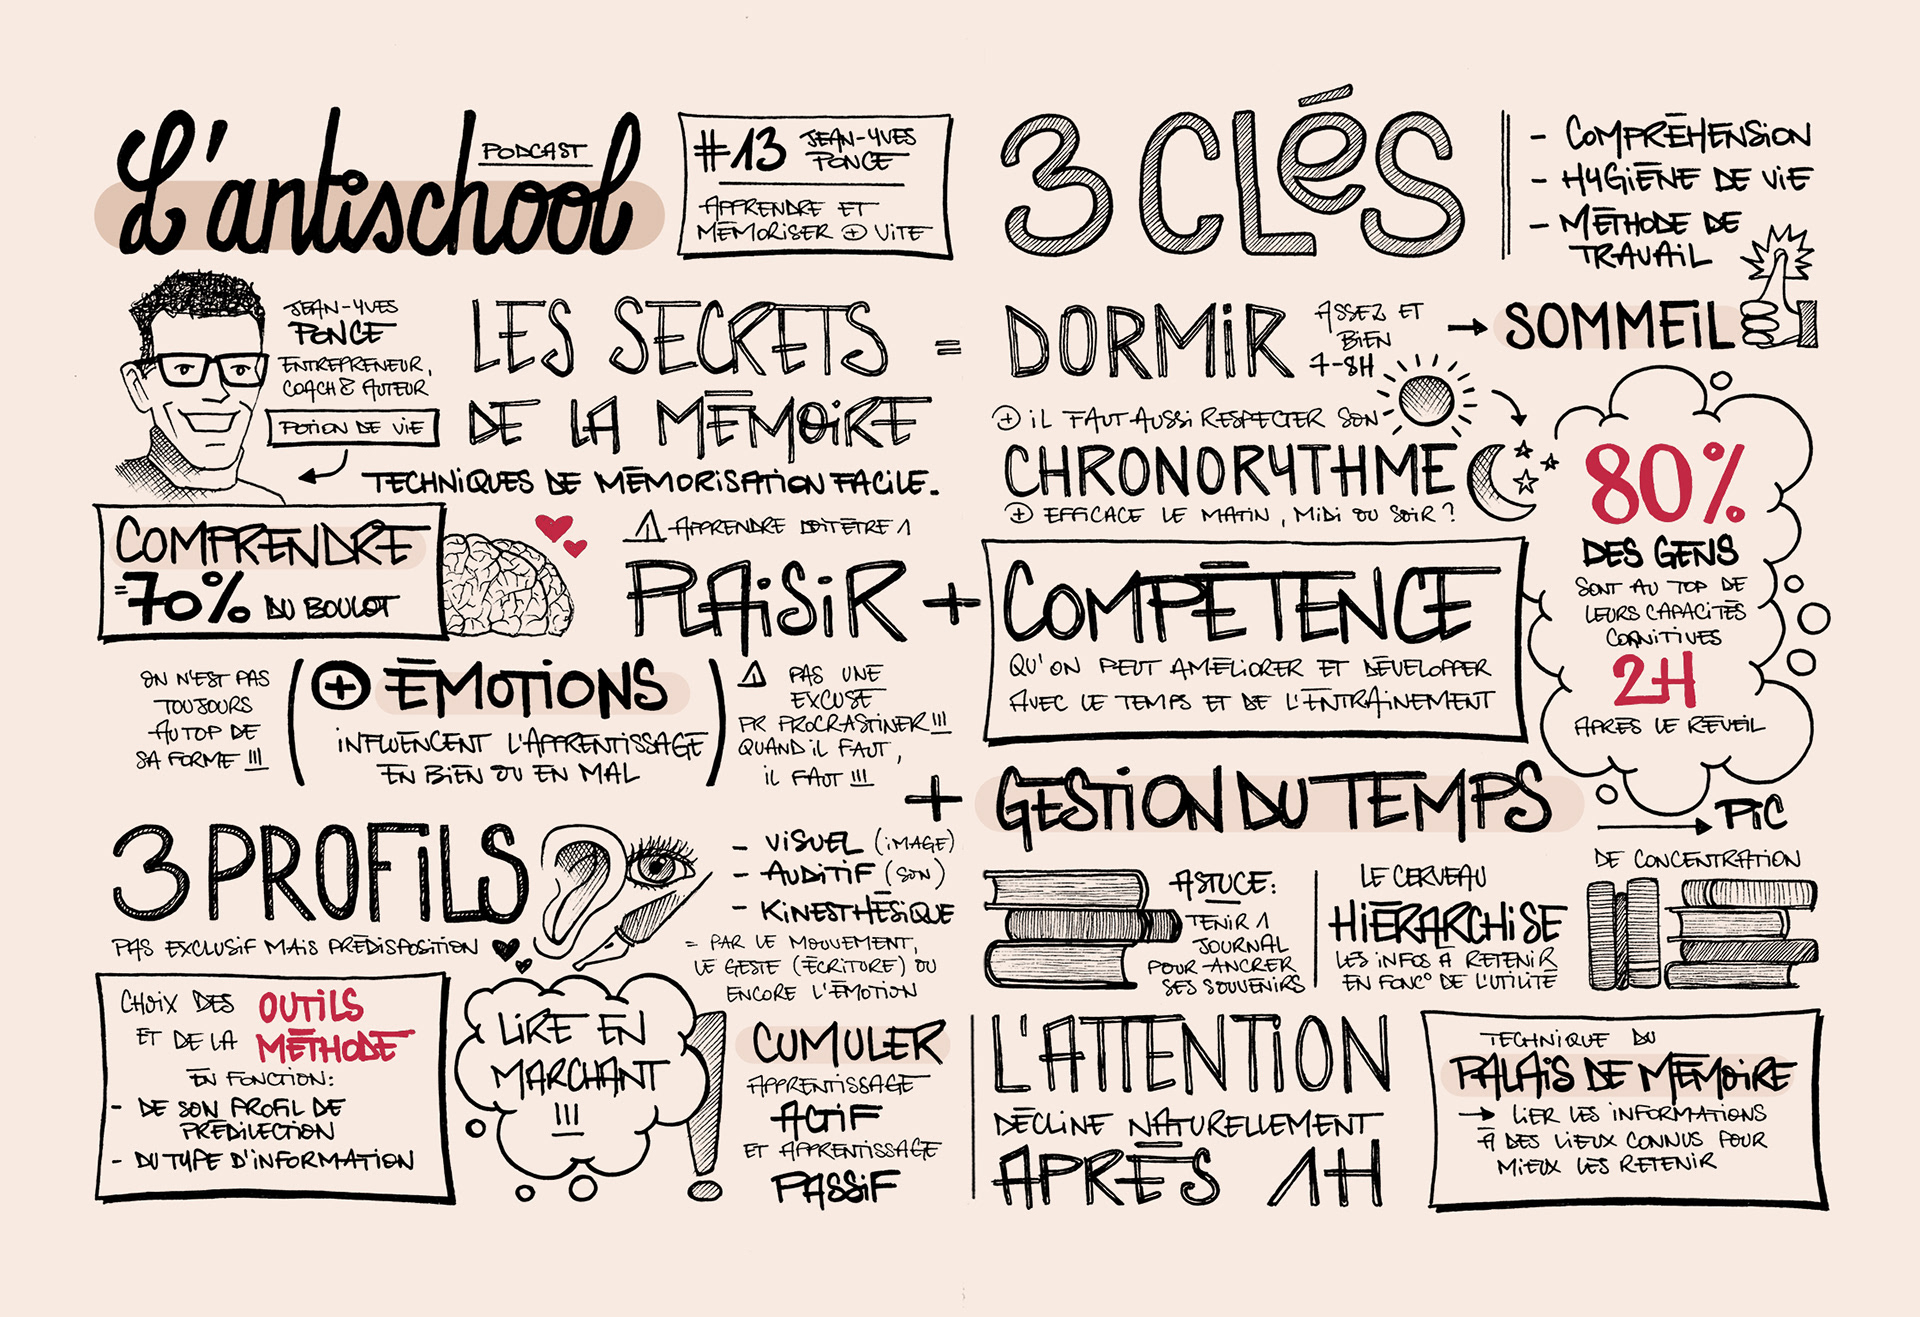 L'antischool
PODCAST
#13 JEAN-YVES
PONCE
APPRENDRE ET
MÉMORISER + VITE
JEAN-YVES
PONCE
ENTREPRENEUR,
COACH & AUTEUR
POTION DE VIE
LES SECRETS
DE LA MÉMOIRE
=
TECHNIQUES DE MÉMORISATION FACILE.
COMPRENDRE
=70% DU BOULOT
⚠ APPRENDRE DOIT ÊTRE 1
PLAISIR +
ON N'EST PAS
TOUJOURS
AU TOP DE
SA FORME !!!
( + ÉMOTIONS
INFLUENCENT L'APPRENTISSAGE
EN BIEN OU EN MAL )
⚠ PAS UNE
EXCUSE
PR PROCRASTINER !!!
QUAND iL FAUT,
iL FAUT !!!
3 PROFiLS
PAS EXCLUSIF MAIS PRÉDISPOSITION
- VISUEL (IMAGE)
- AUDITIF (SON)
- KINESTHÉSIQUE
= PAR LE MOUVEMENT,
LE GESTE (ÉCRITURE) OU
ENCORE L'ÉMOTION
CHOIX DES OUTILS
ET DE LA MÉTHODE
EN FONCTION:
- DE SON PROFIL DE
PRÉDILECTION
- DU TYPE D'INFORMATION
LIRE EN
MARCHANT
!!!
CUMULER
APPRENTISSAGE
ACTIF
ET APPRENTISSAGE
PASSIF
3 CLéS
- COMPRÉHENSION
- HYGIÈNE DE VIE
- MÉTHODE DE
TRAVAIL
DORMIR
ASSEZ ET
BIEN
7-8H
→ SOMMEIL
+ IL FAUT AUSSI RESPECTER SON
CHRONORYTHME
+ EFFICACE LE MATIN, MIDI OU SOIR ?
COMPÉTENCE
QU'ON PEUT AMÉLIORER ET DÉVELOPPER
AVEC LE TEMPS ET DE L'ENTRAINEMENT
80%
DES GENS
SONT AU TOP DE
LEURS CAPACITÉS
COGNITIVES
2H
APRÈS LE RÉVEIL
→ PIC
DE CONCENTRATION
+ GESTION DU TEMPS
ASTUCE:
TENIR 1
JOURNAL
POUR ANCRER
SES SOUVENIRS
LE CERVEAU
HIÉRARCHISE
LES INFOS À RETENIR
EN FONC° DE L'UTILITÉ
L'ATTENTION
DÉCLINE NATURELLEMENT
APRÈS 1H
TECHNIQUE DU
PALAIS DE MÉMOIRE
→ LIER LES INFORMATIONS
À DES LIEUX CONNUS POUR
MIEUX LES RETENIR